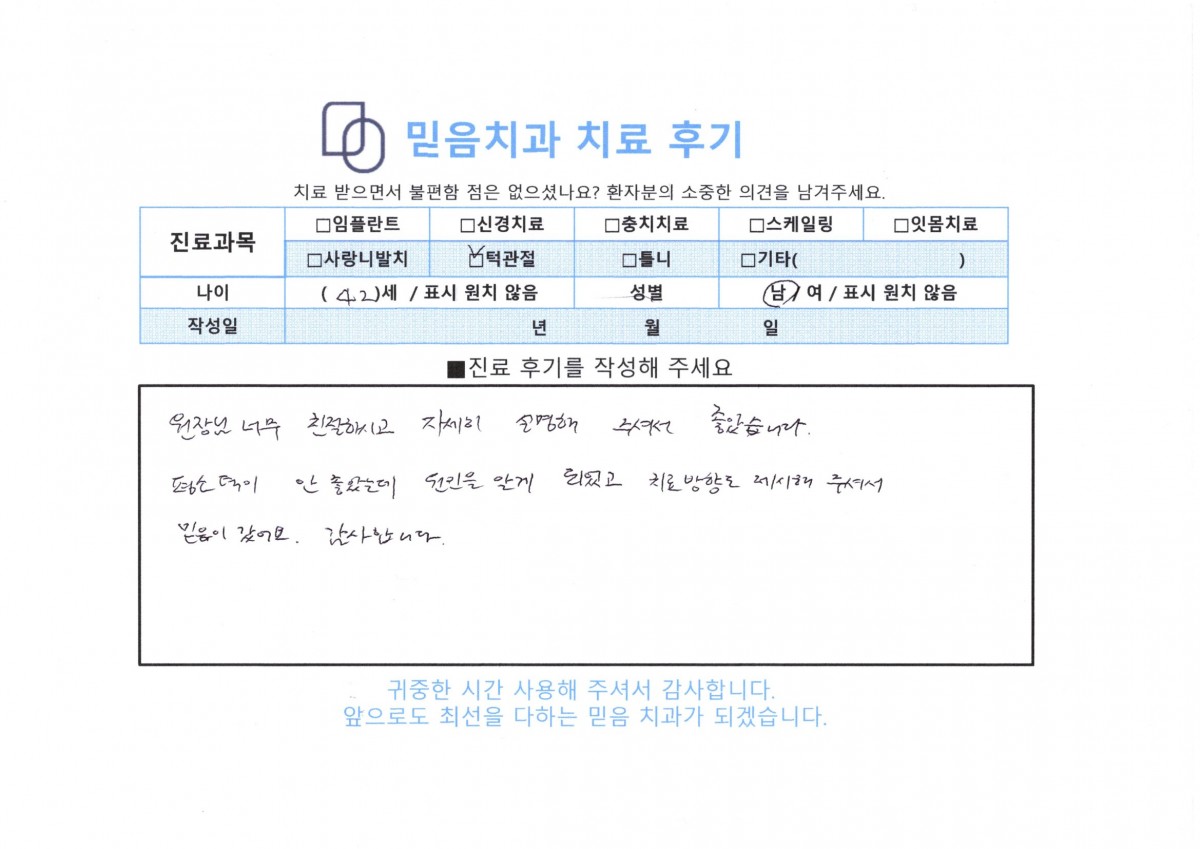 믿음치과 치료 후기
치료 받으면서 불편함 점은 없으셨나요? 환자분의 소중한 의견을 남겨주세요.
진료과목 □임플란트 □신경치료 □충치치료 □스케일링 □잇몸치료
□사랑니발치 ☑턱관절 □틀니 □기타( )
나이 ( 42 )세 / 표시 원치 않음 성별 남 / 여 / 표시 원치 않음
작성일 년 월 일
■진료 후기를 작성해 주세요
원장님 너무 친절하시고 자세히 설명해 주셔서 좋았습니다.
평소 턱이 안 좋았는데 원인을 알게 되었고 치료방향도 제시해 주셔서
믿음이 갔어요. 감사합니다.
귀중한 시간 사용해 주셔서 감사합니다.
앞으로도 최선을 다하는 믿음 치과가 되겠습니다.